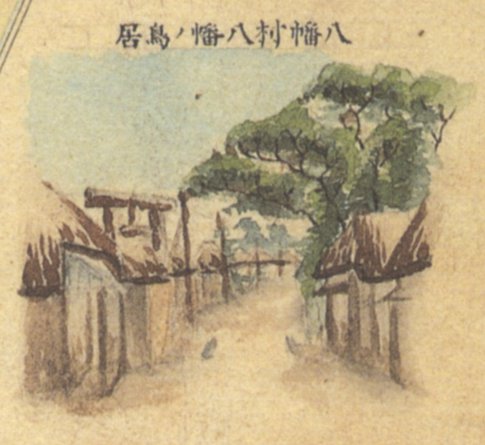 八幡村八幡ノ鳥居